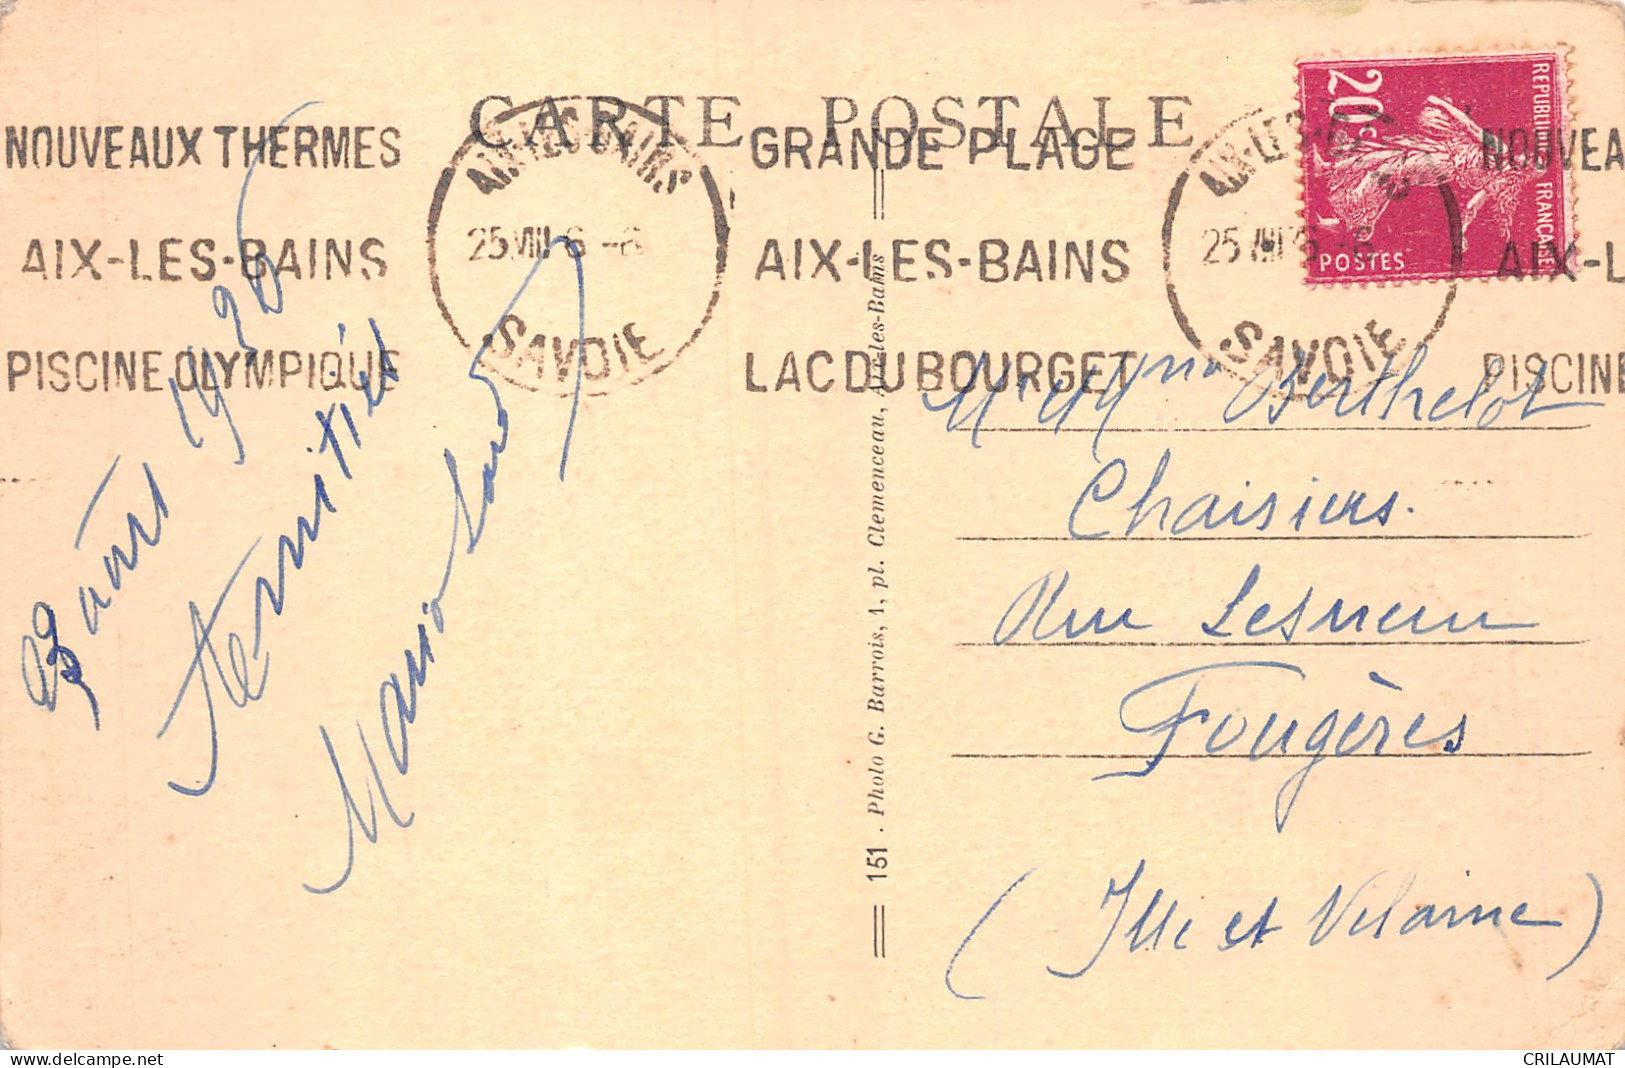 CARTE POSTALE
NOUVEAUX THERMES
AIX-LES-BAINS
PISCINE OLYMPIQUE
AIX-LES-BAINS
25 VIII 6 -6
SAVOIE
GRANDE PLAGE
AIX-LES-BAINS
LAC DU BOURGET
AIX-LES-
25 VIII
SAVOIE
NOUVEA
AIX-L
PISCINE
20c
REPUBLIQUE FRANÇAISE
POSTES
août 1936
Amitiés
151 . Photo G. Barrois, 1, pl. Clemenceau, Aix-les-Bains
Mr et Mme Berthelot
Chaisiers.
Rue Lesueur
Fougères
(Ille et Vilaine)
www.delcampe.net
CRILAUMAT